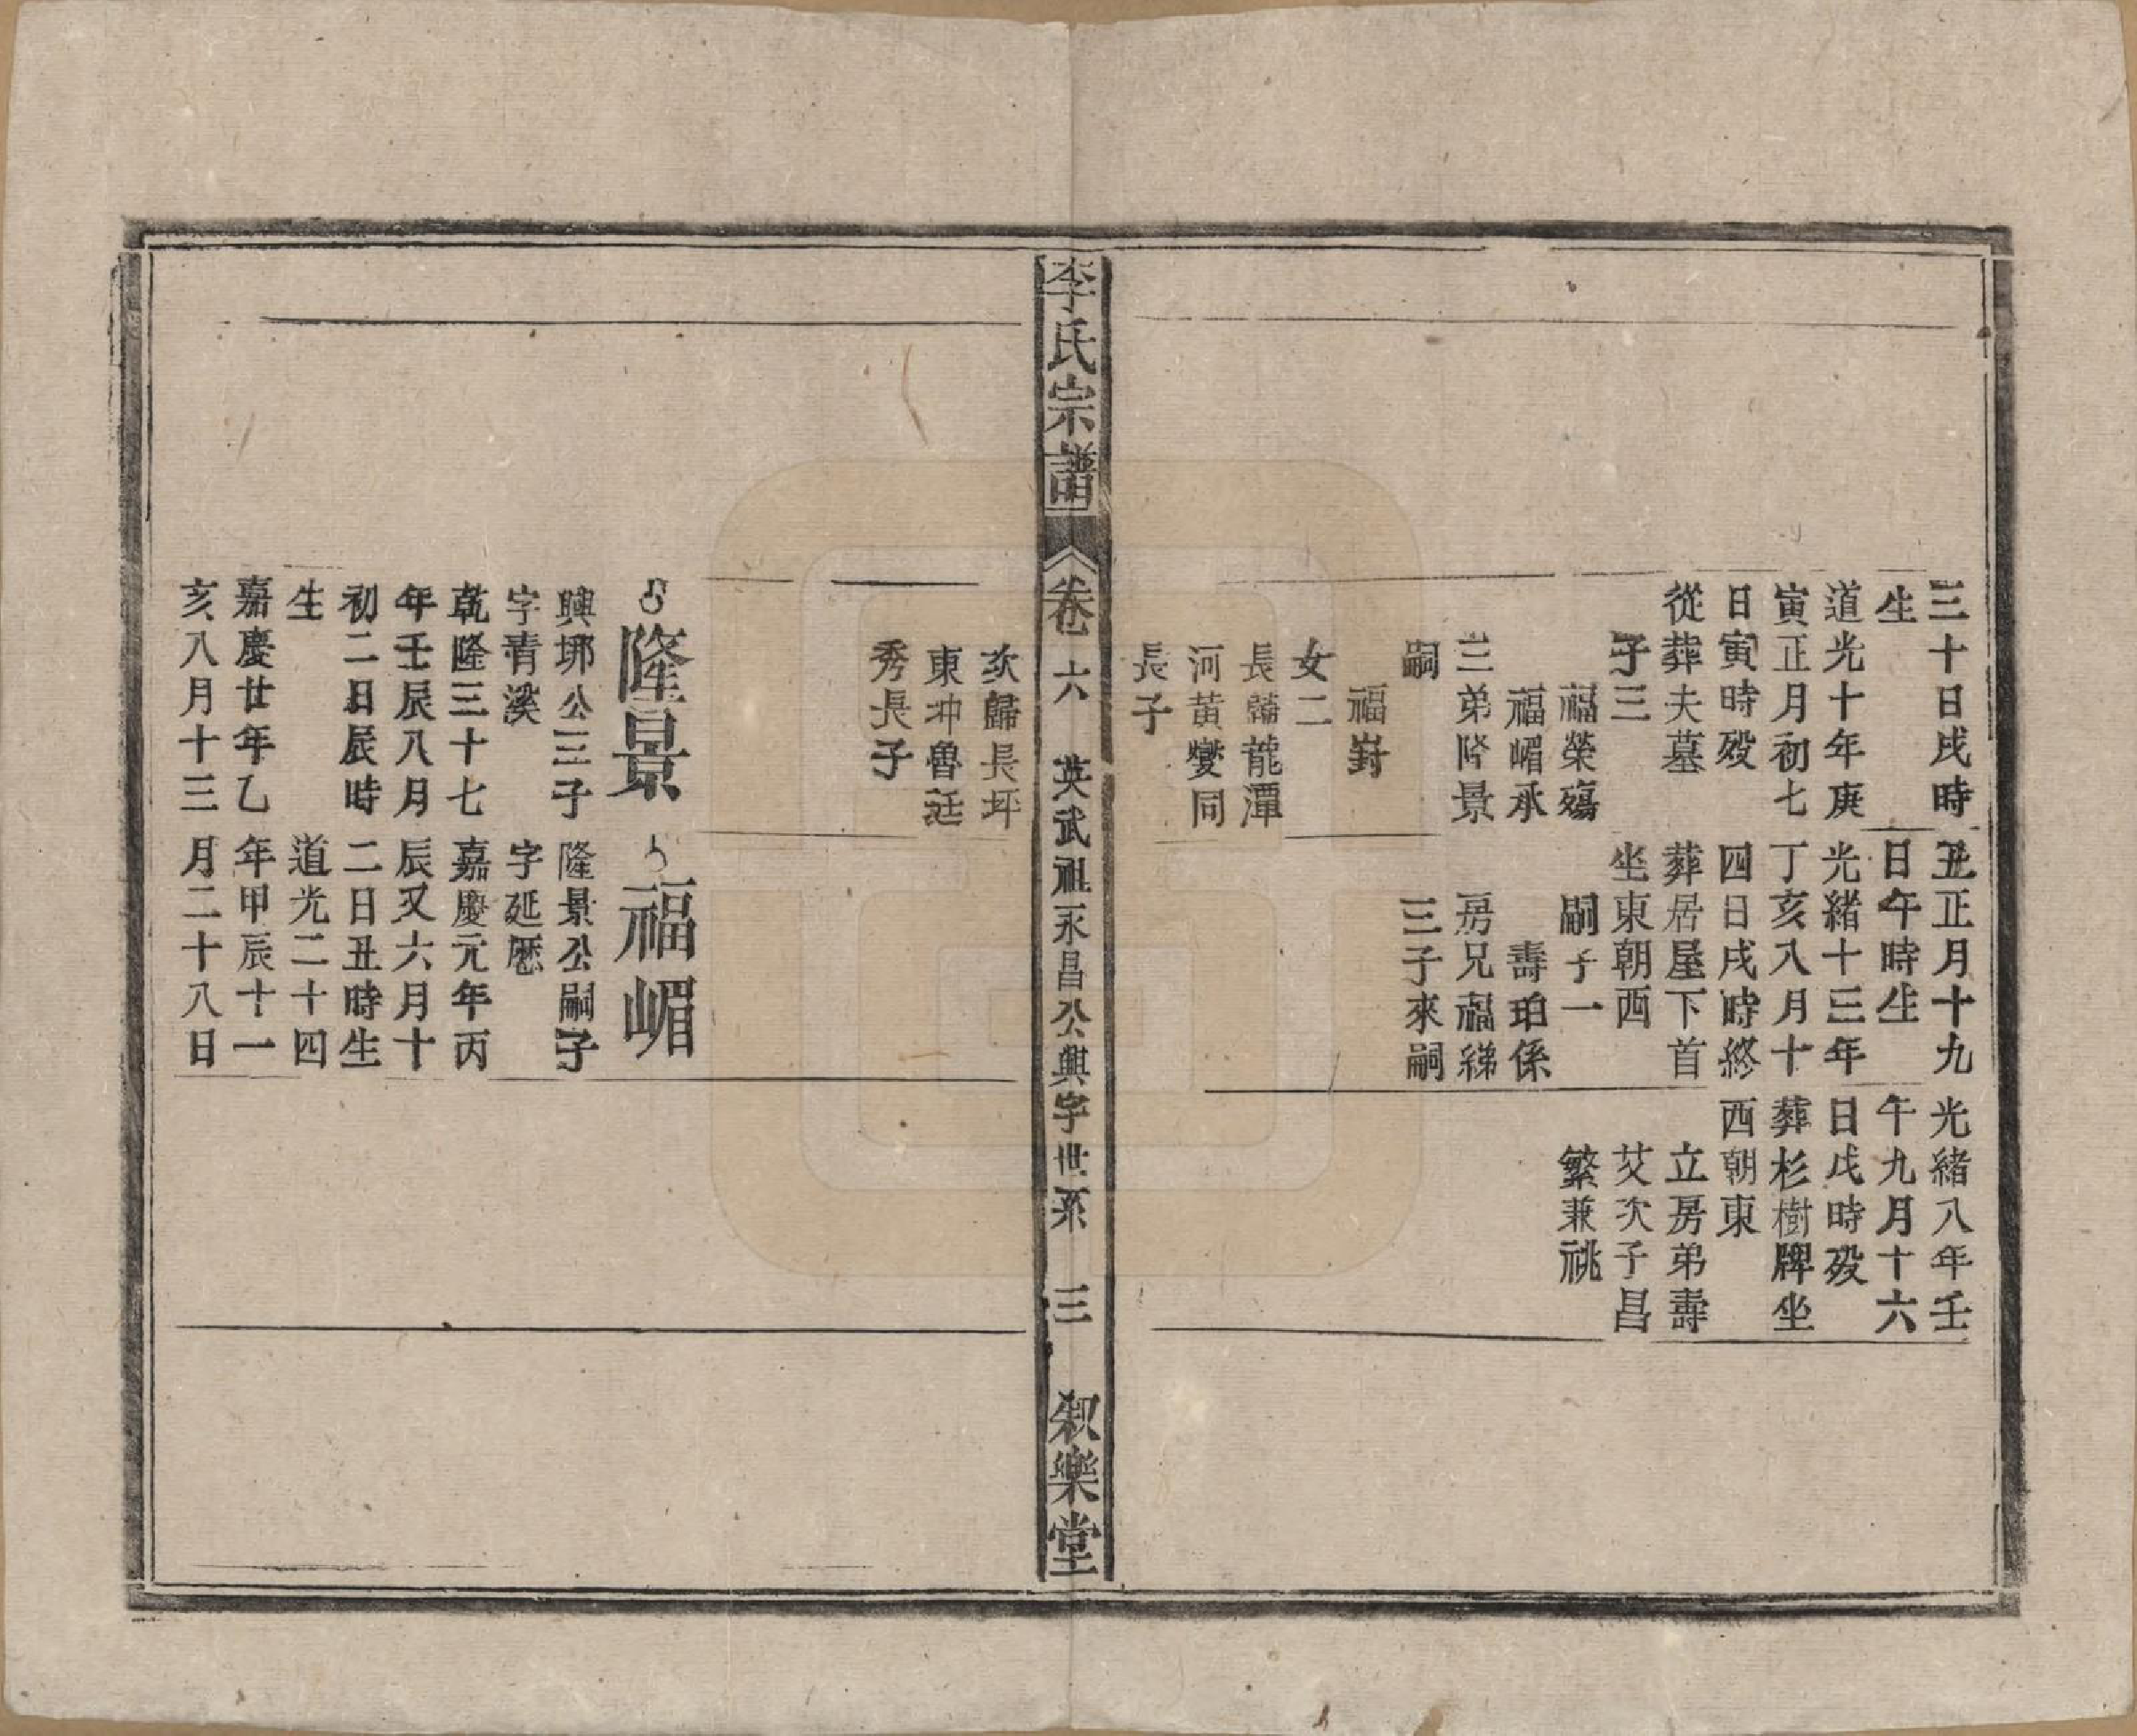 三十日戌時
生
道光十年庚
寅正月初七
日寅時歿
從葬夫墓
子三
福榮殤
福嵋承
三弟隆景
嗣
福崶
女二
長歸龍潭
河黃燮同
長子
丑正月十九
日午時生
光緒十三年
丁亥八月十
四日戌時終
葬居屋下首
坐東朝西
嗣子一
壽珀係
房兄福綈
三子來嗣
光緒八年壬
午九月十六
日戌時歿
葬杉樹牌坐
西朝東
立房弟壽
艾次子昌
繁兼祧
李氏宗譜
卷六 英武祖永昌公興字世系 三 叙樂堂
次歸長坪
東坤魯廷
秀長子
隆景
興琊公三子
字青溪
乾隆三十七
年壬辰八月
初二日辰時
生
嘉慶廿年乙
亥八月十三
福嵋
隆景公嗣子
字延厯
嘉慶元年丙
辰又六月十
二日丑時生
道光二十四
年甲辰十一
月二十八日